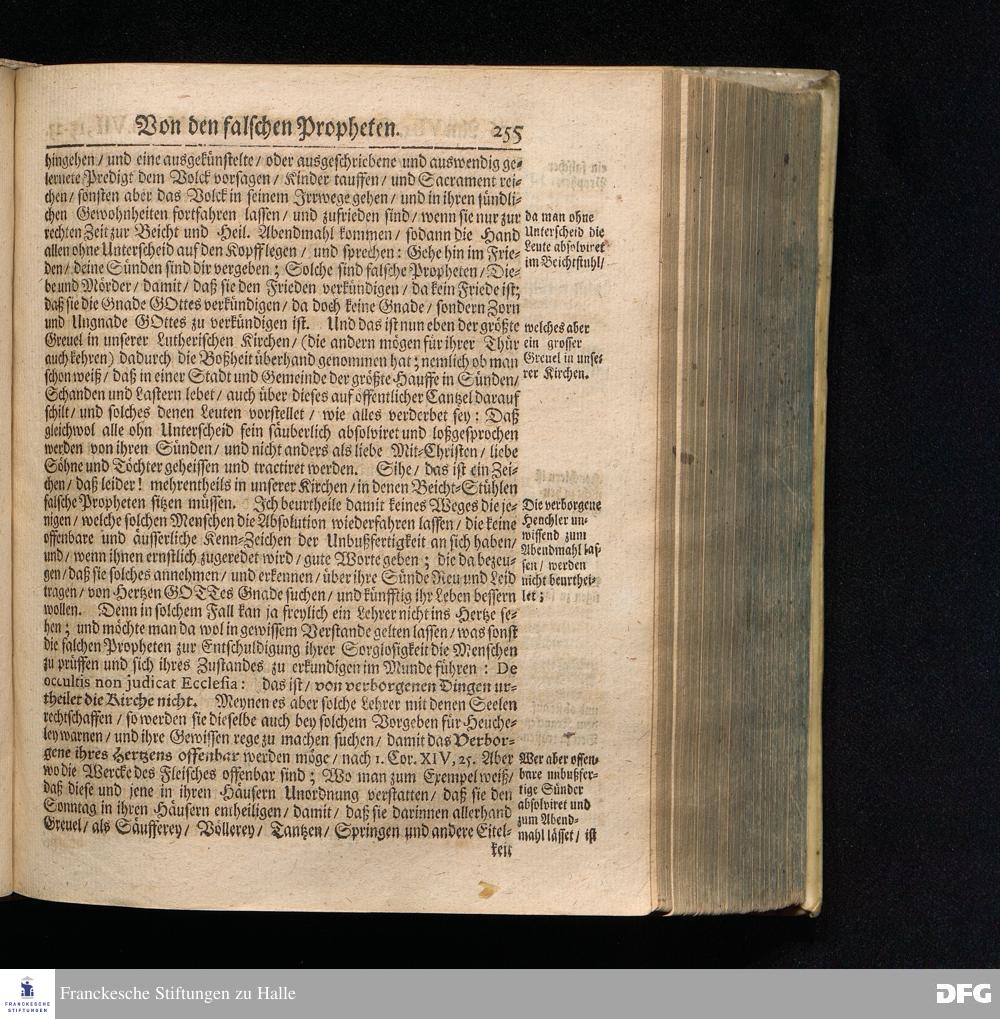 Von den falschen Propheten. 255
hingehen/ und eine ausgekünstelte/ oder ausgeschriebene und auswendig ge-
lernete Predigt dem Volck vorsagen/ Kinder tauffen/ und Sacrament rei-
chen/ sonsten aber das Volck in seinem Irrwege gehen/ und in ihren sündli-
chen Gewohnheiten fortfahren lassen/ und zufrieden sind/ wenn sie nur zur
rechten Zeit zur Beicht und Heil. Abendmahl kommen/ sodann die Hand
allen ohne Unterscheid auf den Kopff legen/ und sprechen: Gehe hin im Frie-
den/ deine Sünden sind dir vergeben; Solche sind falsche Propheten/ Die-
be und Mörder/ damit/ daß sie den Frieden verkündigen/ da kein Friede ist;
daß sie die Gnade GOttes verkündigen/ da doch keine Gnade/ sondern Zorn
und Ungnade GOttes zu verkündigen ist. Und das ist nun eben der größte
Greuel in unserer Lutherischen Kirchen/ (die andern mögen für ihrer Thür
auch kehren) dadurch die Boßheit überhand genommen hat; nemlich ob man
schon weiß/ daß in einer Stadt und Gemeinde der größte Hauffe in Sünden/
Schanden und Lastern lebet/ auch über dieses auf öffentlicher Cantzel darauf
schilt/ und solches denen Leuten vorstellet/ wie alles verderbet sey: Daß
gleichwol alle ohn Unterscheid fein säuberlich absolviret und loßgesprochen
werden von ihren Sünden/ und nicht anders als liebe Mit-Christen/ liebe
Söhne und Töchter geheissen und tractiret werden. Sihe/ das ist ein Zei-
chen/ daß leider! mehrentheils in unserer Kirchen/ in denen Beicht-Stühlen
falsche Propheten sitzen müssen. Ich beurtheile damit keines Weges die je-
nigen/ welche solchen Menschen die Absolution wiederfahren lassen/ die keine
offenbare und äusserliche Kenn-Zeichen der Unbußfertigkeit an sich haben/
und/ wenn ihnen ernstlich zugeredet wird/ gute Worte geben; die da bezeu-
gen/ daß sie solches annehmen/ und erkennen/ über ihre Sünde Reu und Leid
tragen/ von Hertzen GOTTes Gnade suchen/ und künfftig ihr Leben bessern
wollen. Denn in solchem Fall kan ja freylich ein Lehrer nicht ins Hertze se-
hen; und möchte man da wol in gewissem Verstande gelten lassen/ was sonst
die falchen Propheten zur Entschuldigung ihrer Sorglosigkeit die Menschen
zu prüffen und sich ihres Zustandes zu erkundigen im Munde führen: De
occultis non judicat Ecclesia: das ist/ von verborgenen Dingen ur-
theilet die Kirche nicht. Meynen es aber solche Lehrer mit denen Seelen
rechtschaffen/ so werden sie dieselbe auch bey solchem Vorgeben für Heuche-
ley warnen/ und ihre Gewissen rege zu machen suchen/ damit das Verbor-
gene ihres Hertzens offenbar werden möge/ nach 1. Cor. XIV, 25. Aber
wo die Wercke des Fleisches offenbar sind; Wo man zum Exempel weiß/
daß diese und jene in ihren Häusern Unordnung verstatten/ daß sie den
Sonntag in ihren Häusern entheiligen/ damit/ daß sie darinnen allerhand
Greuel/ als Säufferey/ Völlerey/ Tantzen/ Springen und andere Eitel-
keit
da man ohne
Unterscheid die
Leute absolviret
im Beichtstuhl/
welches aber
ein grosser
Greuel in unse-
rer Kirchen.
Die verborgene
Heuchler un-
wissend zum
Abendmahl las-
sen/ werden
nicht beurthei-
let;
Wer aber offen-
bare unbußfer-
tige Sünder
absolviret und
zum Abend-
mahl lässet/ ist
FRANCKESCHE
STIFTUNGEN
Franckesche Stiftungen zu Halle
DFG